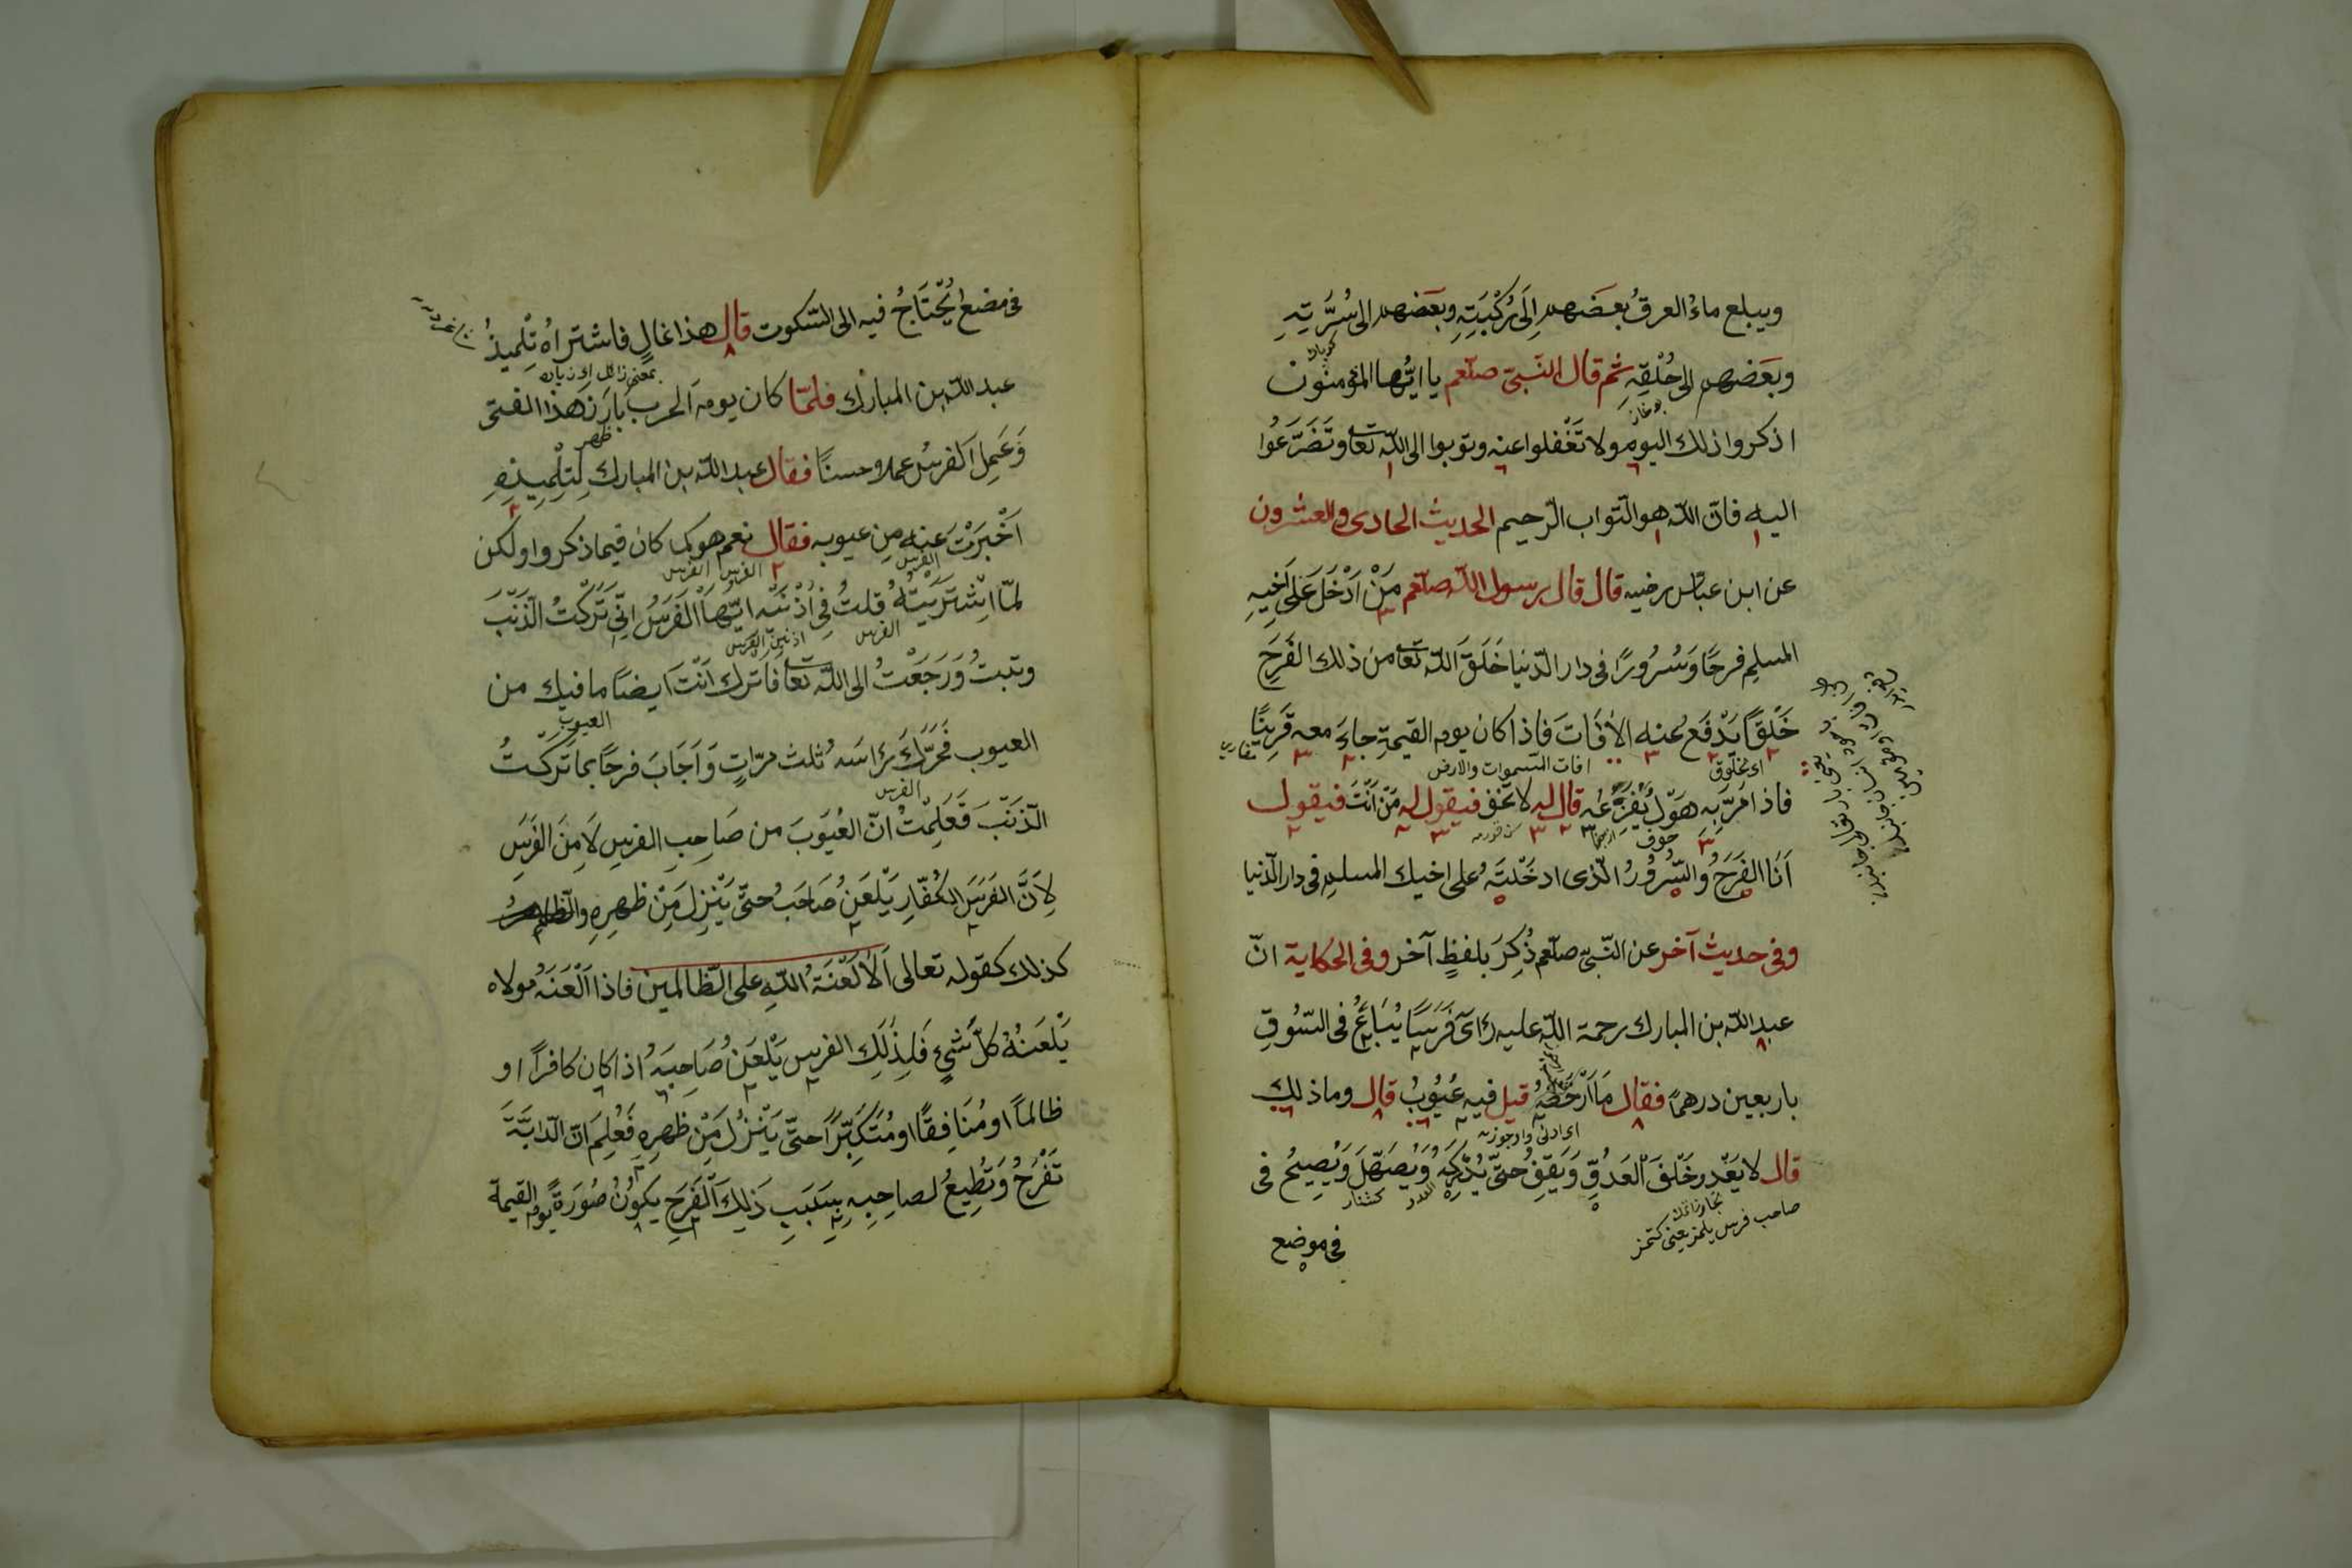 ويبلع ماءُ العرقُ بعضهم اِلَى رُكْبَتِهِ وبعَضهم الى سُرَّتِهِ
وبَعَضهم الى حُلْقِهِ ثم قال النّبىّ صلّعم يا ايّها المؤمنون
اذكروا ذلك اليوم ولا تَغْفلوا عنه وتوبوا الى اللّه تعا وتَضَرَّعُوا
اليه فانّ اللّه هو التواب الرّحيم الحديث الحادى والعشرون
عن ابن عبّاس رضيه قال قال رسول اللّه صلّعم مَنْ اَدْخَلَ عَلَى اَخِيهِ
المسلم فرحًا وَسُرُورًا فى دار الدّنيا خَلَقَ اللّه تعا من ذلك الفَرَحِ
خَلْقًا يَدْفَعُ عنه الاٰفَاتَ فاذا كان يوم القيمةِ جاءَ معه قَرِينًا
اى مخلوق افات السّموات والارض
فاذا مَرَّ به هَوْلٌ يُفْزِعُهُ قال له لا تخف فيقول له مَنْ اَنْتَ فيقول
خوف
اَنَا الفَرَحُ والسُّرُورُ الّذى ادخَلْتَهُ على اخيك المسلم فى دار الدّنيا
وفى حديث آخر عن النّبىّ صلّعم ذُكِرَ بلفظٍ آخر وفى الحكاية انّ
عبد اللّه بن المبارك رحمة اللّه عليه رَاىَ فَرَسًا يُبَاعُ فى السّوقِ
باربعين درهمًا فقال مَا اَرْخَصَهُ قيل فيه عُيُوبٌ قال وما ذلك
قال لا يَعْدو خَلْفَ العَدُوِّ وَيَقِفُ حتّى يُدْرِكَهُ وَيُصَهِّلَ وَيُصِيحُ فى
العدو
صاحب فرس يلمز يعنى كتمز
فى موضع
فى مضع يُحْتَاجُ فيه الى السّكوت قال هذا غالٍ فاشتراهُ تِلْمِيذُ
عبد اللّه بن المبارك فلمّا كان يوم الحرب بَارَزَ هذا الفتى
ظهر
وَعَمِلَ الفرسُ عملا وحسنًا فقال عبد اللّه بن المبارك لِتِلْمِيذِهِ
اَخْبَرْتَ عنه مِن عيوبه فقال نعم هو كما كان فيما ذكروا ولكن
الفرس الفرس الفرس
لمّا اشْتَرَيْتُهُ قلتُ فِى اُذْنَيْهِ ايّها الفَرَسُ اِنّى تَرَكْتُ الذَّنْبَ
الفرس اذنين الفرس
وتبتُ وَرَجَعْتُ الى اللّه تعا فاترك اَنْتَ ايضًا ما فيك من
العيوب
العيوب فَحَرَّكَ رَاسَه ثلث مرّاتٍ وَاَجَابَ فرحًا بما تَرَكْتُ
الفرس
الذّنْبَ فَعَلِمْتُ انّ العُيُوبَ من صَاحِبِ الفرسِ لَا مِنَ الفَرَسِ
لِاَنَّ الفَرَسَ الكُفّارِ يَلْعَنُ صَاحَبُ حتّى يَنْزِلَ مِنْ ظهرِهِ والظلم
كذلك كقوله تعالى اَلَا لَعْنَةُ اللّهِ على الظّالمين فاذا الْعَنَهُ مولاه
يَلْعَنُهُ كلُّ شَىْءٍ فَلِذٰلِكَ الفرس يَلْعَنُ صَاحِبَهُ اذا كان كافرًا او
ظالماً او مُنَافِقًا او مُتَكَبِّرًا حتّى يَنْزِلَ مِنْ ظهرِهِ فَعُلِمَ انّ الدّابَّةَ
تَفْرَحُ وَتُطِيعُ لصاحِبِهِ بِسَبَبِ ذَلِكَ الْفَرَحِ يكونُ صُورَةً يوم القيمة